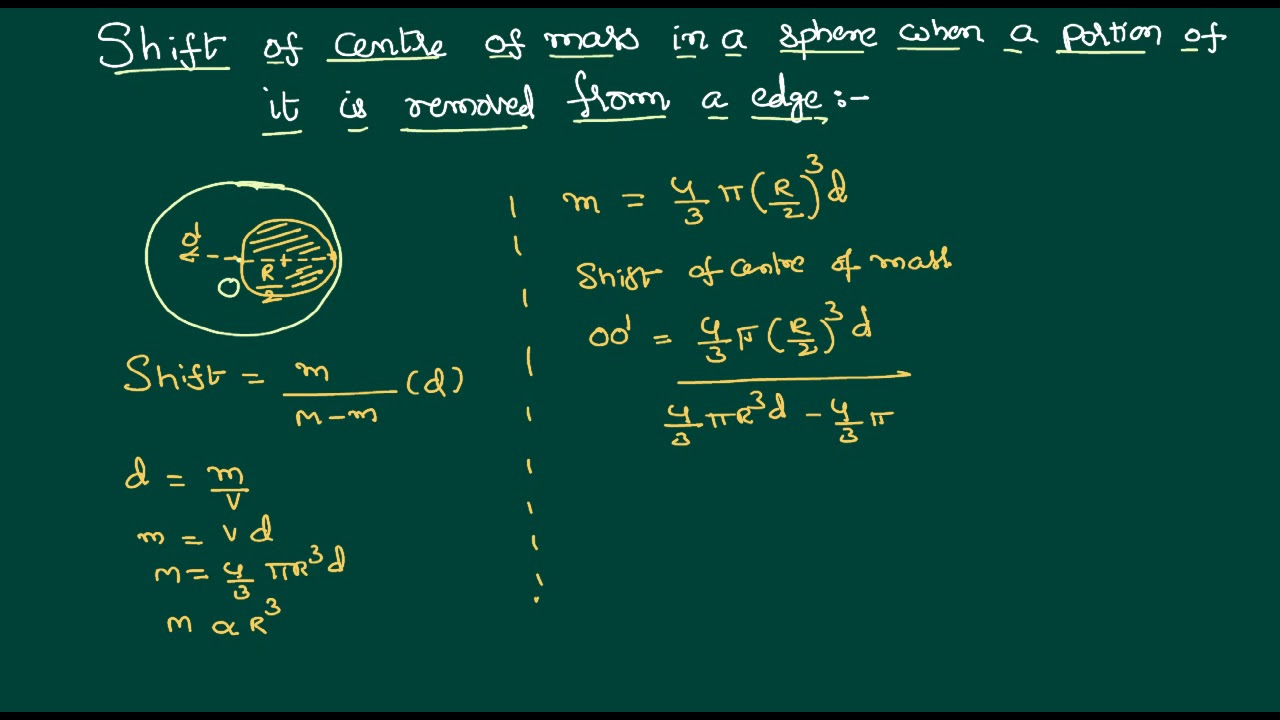 Shift of centre of mass in a sphere when a portion of
it is removed from a edge:-
d
R/2
O
Shift = m/(M-m) (d)
d = m/V
m = Vd
M = 4/3 πR³d
M ∝ R³
m = 4/3 π(R/2)³d
Shift of centre of mass
OO' = 4/3 π(R/2)³d
4/3 πR³d - 4/3 π